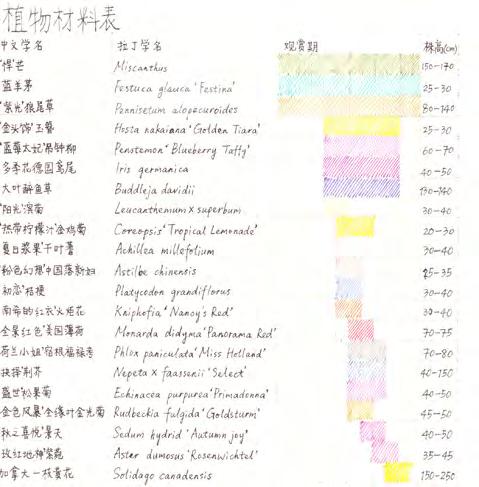 植物材料表
中文学名 拉丁学名 观赏期 株高(cm)
芒 Miscanthus 150-170
蓝羊茅 Festuca glauca 'Festina' 25-30
'紫光'狼尾草 Pennisetum alopecuroides 80-140
'金头饰'玉簪 Hosta nakaiana 'Golden Tiara' 25-30
'蓝莓太妃'吊钟柳 Penstemon 'Blueberry Taffy' 60-70
多季花德国鸢尾 Iris germanica 40-50
大叶醉鱼草 Buddleja davidii 130-140
'阳光'滨菊 Leucanthemum x superbum 30-40
'热带柠檬汁'金鸡菊 Coreopsis 'Tropical Lemonade' 20-30
'夏日浆果'千叶蓍 Achillea millefolium 30-40
'粉色幻想'中国落新妇 Astilbe chinensis 25-35
'初恋'桔梗 Platycodon grandiflorus 30-40
'南希的红衣'火炬花 Kniphofia 'Nancy's Red' 30-40
'全景红色'美国薄荷 Monarda didyma 'Panorama Red' 70-75
'荷兰小姐'宿根福禄考 Phlox paniculata 'Miss Holland' 70-80
'抉择'荆芥 Nepeta x faassenii 'Select' 40-150
'盛世'松果菊 Echinacea purpurea 'Primadonna' 40-50
'金色风暴'全缘叶金光菊 Rudbeckia fulgida 'Goldsturm' 45-50
'秋之喜悦'景天 Sedum hydrid 'Autumn joy' 40-50
'玫红地神'紫菀 Aster dumosus 'Rosenwichtel' 35-45
加拿大一枝黄花 Solidago canadensis 150-250